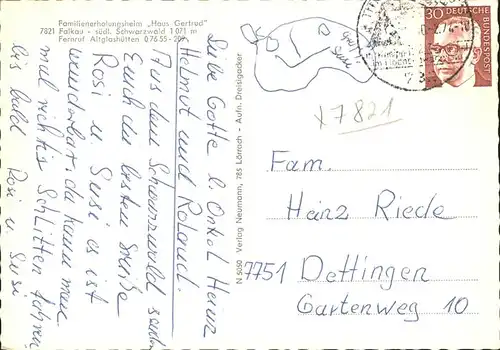 Familienerholungsheim „Haus Gertrud"
7821 Falkau - südl. Schwarzwald 1 071 m
Fernruf Altglashütten 0 76 55 - 202
Liebe Gotte l. Onkel Heinz
Helmut und Roland.
Aus dem Schwarzwald senden
Euch die besten Grüße
Rosi u. Susi es ist
wunderbar. da kann man
mal richtig Schlitten fahren
bis bald Rosi u. Susi
N 5050 Verlag Neumann, 785 Lörrach - Aufn. Dreisigacker
30
DEUTSCHE BUNDESPOST
x 7821
Fam.
Heinz Riede
7751 Dettingen
Gartenweg 10